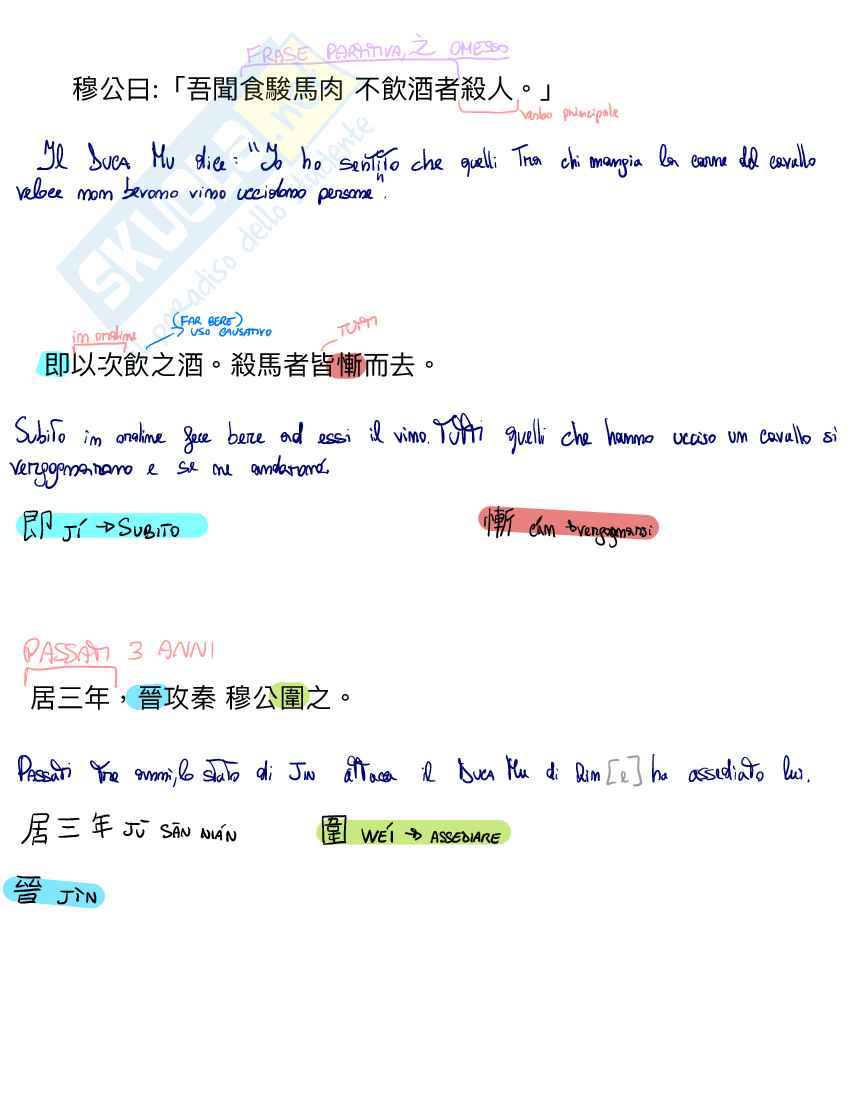 FRASE PARTITIVA, 之 OMESSO
穆公曰:「吾聞食駿馬肉 不飲酒者殺人。」
verbo principale
Il Duca Mu dice: "Io ho sentito che quelli tra chi mangia la carne del cavallo
veloce non bevono vino uccidono persone".
SKUOLA.net
paradiso dello studente
in ordine
(FAR BERE)
USO CAUSATIVO
TUTTI
即以次飲之酒。殺馬者皆慚而去。
Subito in ordine fece bere ad essi il vino. Tutti quelli che hanno ucciso un cavallo si
vergognarono e se ne andarono.
即 JÍ → SUBITO
慚 cán → vergognarsi
PASSATI 3 ANNI
居三年，晉攻秦 穆公圍之。
Passati tre anni, lo stato di Jin attaca il Duca Mu di Qin [e] ha assediato lui.
居三年 JŪ SĀN NIÁN
圍 WÉI → ASSEDIARE
晉 JÌN